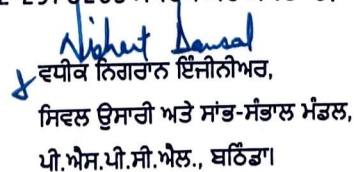 Nishert Bansal
ਵਧੀਕ ਨਿਗਰਾਨ ਇੰਜੀਨੀਅਰ,
ਸਿਵਲ ਉਸਾਰੀ ਅਤੇ ਸਾਂਭ-ਸੰਭਾਲ ਮੰਡਲ,
ਪੀ.ਐਸ.ਪੀ.ਸੀ.ਐਲ., ਬਠਿੰਡਾ।